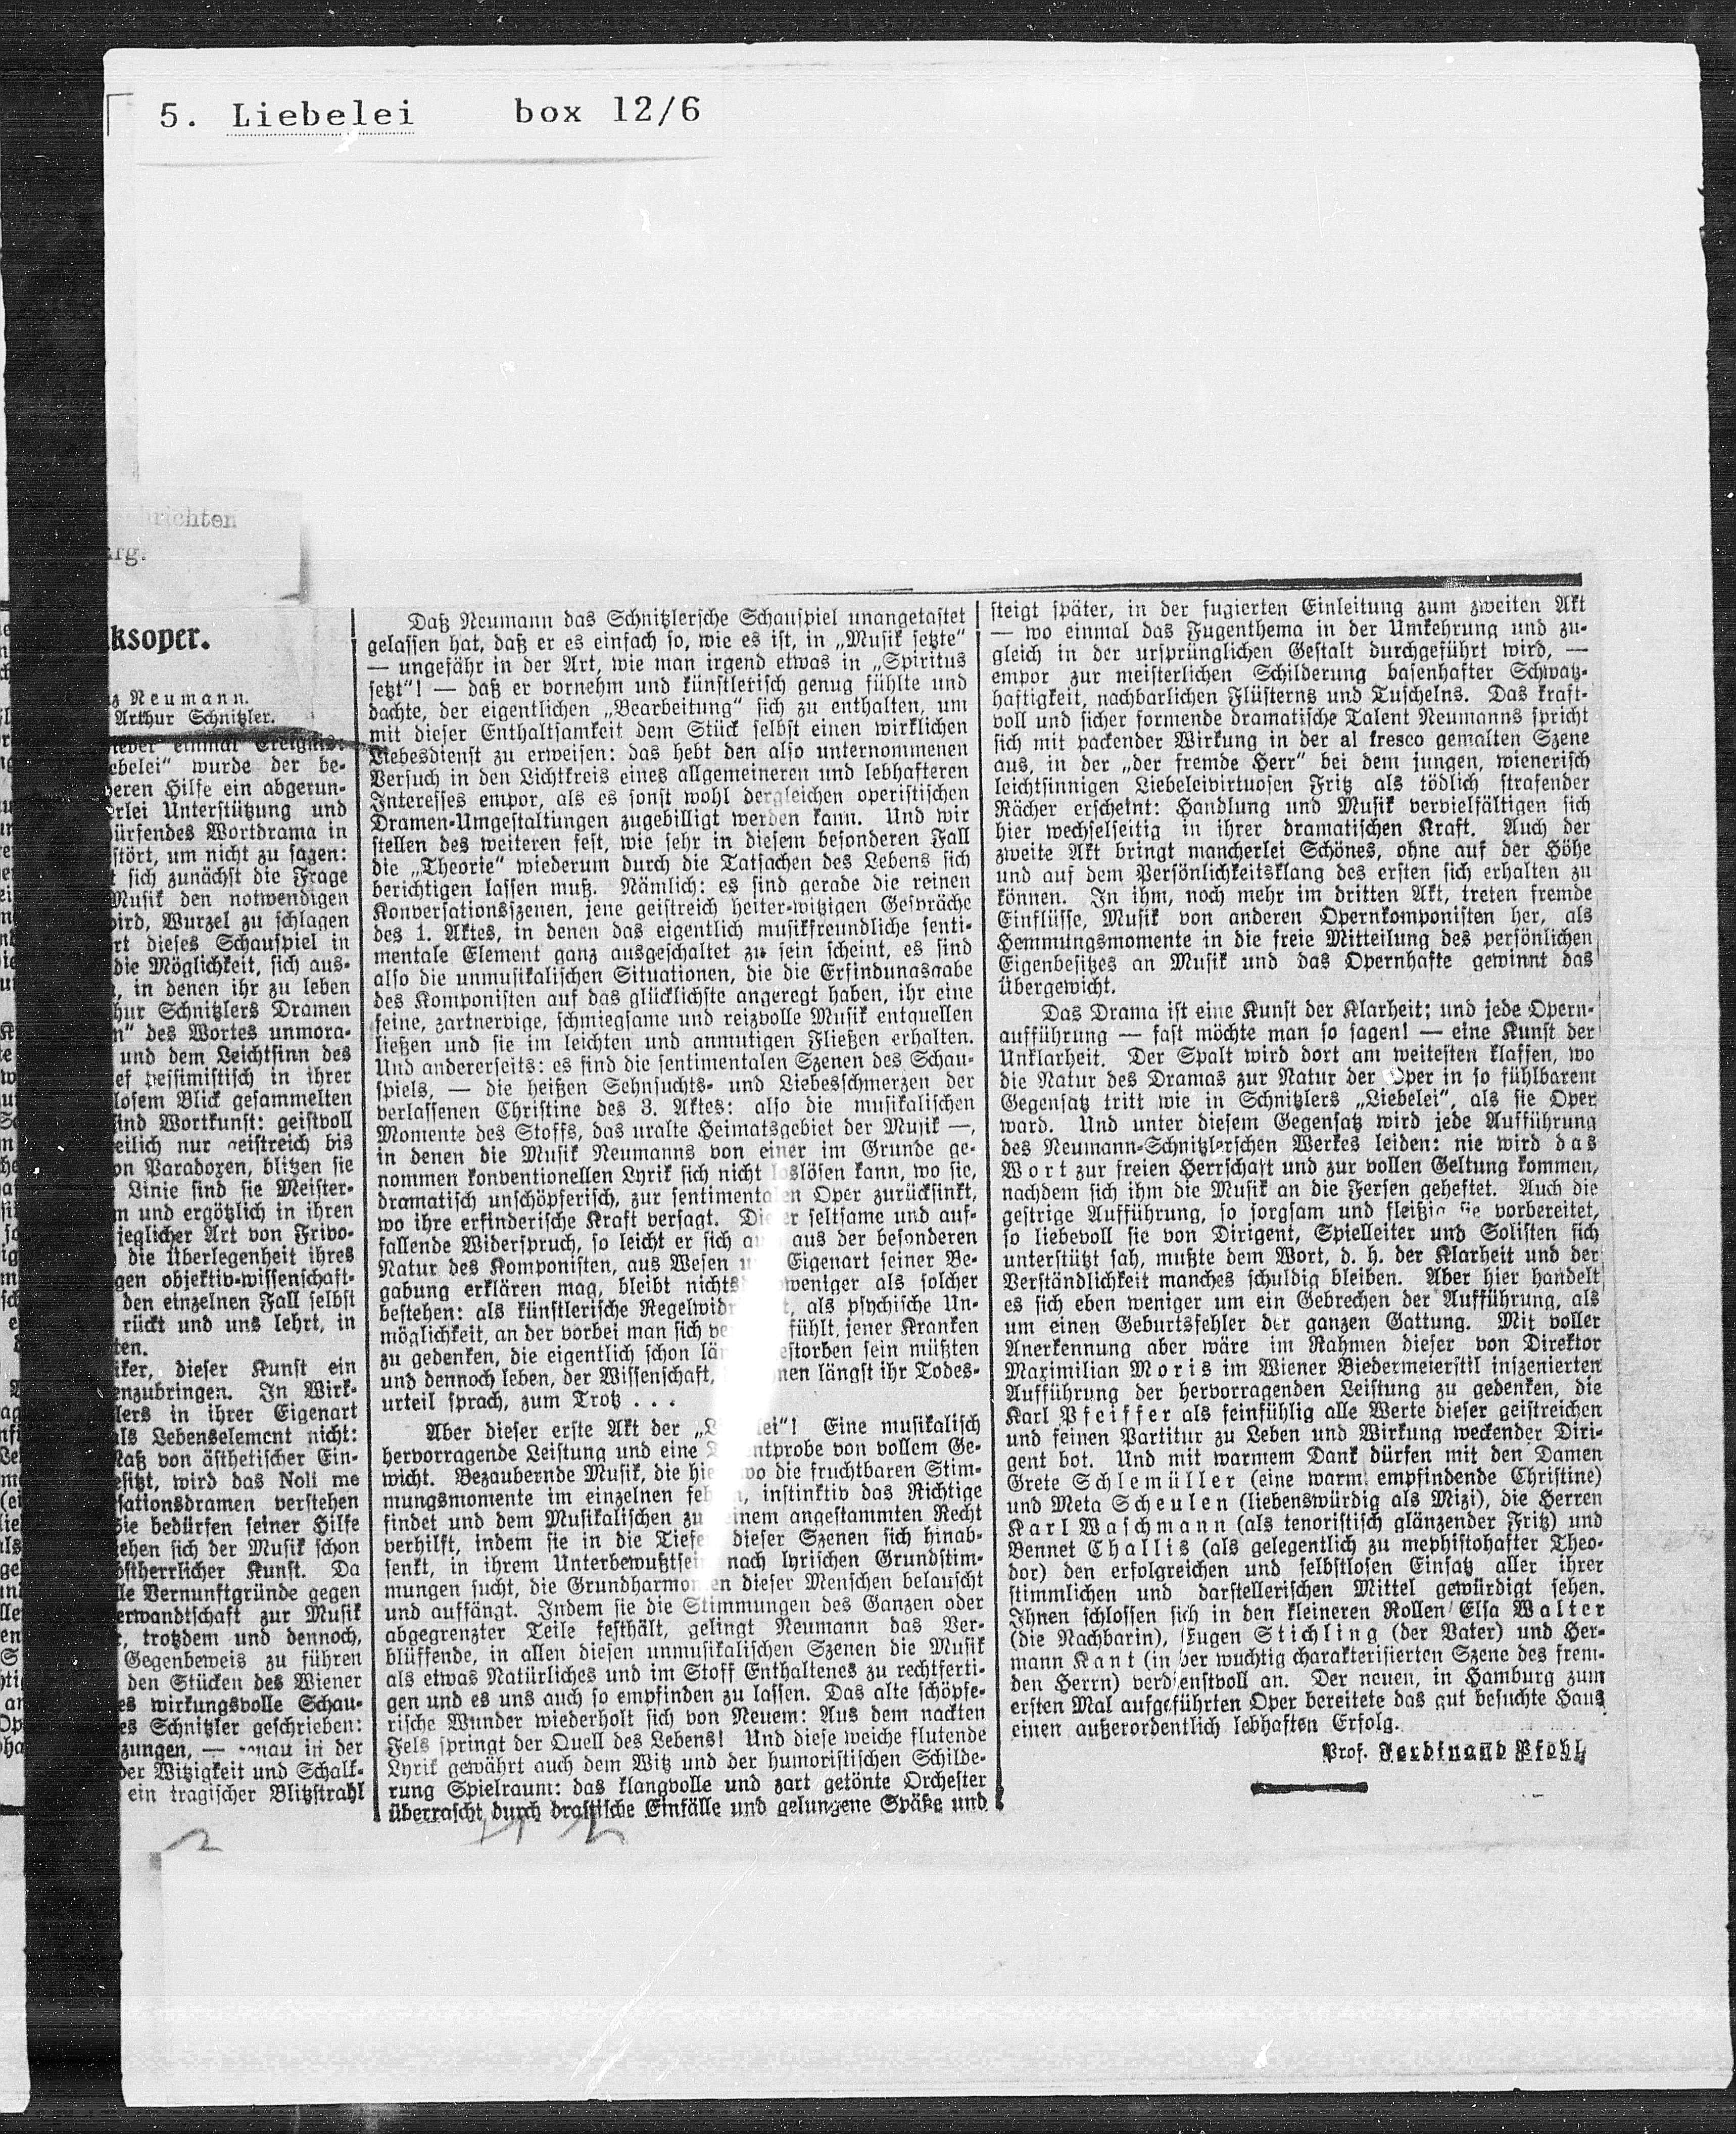 5. Liebelei box 12/6
chrichten
rg.
ksoper.
z Neumann.
Arthur Schnitzler.
wieder einmal Ereignis:
ebelei“ wurde der be-
deren Hilfe ein abgerun-
rlei Unterstützung und
dürfendes Wortdrama in
stört, um nicht zu sagen:
t sich zunächst die Frage
Musik den notwendigen
wird, Wurzel zu schlagen
rt dieses Schauspiel in
die Möglichkeit, sich aus-
, in denen ihr zu leben
hur Schnitzlers Dramen
n“ des Wortes unmora-
und dem Leichtsinn des
ef pessimistisch in ihrer
losem Blick gesammelten
sind Wortkunst: geistvoll
eilich nur geistreich bis
on Paradoxen, blitzen sie
Linie sind sie Meister-
n und ergötzlich in ihren
jeglicher Art von Frivo-
die Überlegenheit ihres
gen objektiv-wissenschaft-
den einzelnen Fall selbst
rückt und uns lehrt, in
ten.
iker, dieser Kunst ein
enzubringen. In Wirk-
lers in ihrer Eigenart
als Lebenselement nicht:
Maß von ästhetischer Ein-
esitzt, wird das Noli me
sationsdramen verstehen
Sie bedürfen seiner Hilfe
ehen sich der Musik schon
bstherrlicher Kunst. Da
lle Vernunftgründe gegen
erwandtschaft zur Musik
, trotzdem und dennoch,
Gegenbeweis zu führen
den Stücken des Wiener
es wirkungsvolle Schau-
es Schnitzler geschrieben:
zungen, — genau in der
der Witzigkeit und Schalk-
ein tragischer Blitzstrahl
Daß Neumann das Schnitzlersche Schauspiel unangetastet
gelassen hat, daß er es einfach so, wie es ist, in „Musik setzte“
— ungefähr in der Art, wie man irgend etwas in „Spiritus
setzt“! — daß er vornehm und künstlerisch genug fühlte und
dachte, der eigentlichen „Bearbeitung“ sich zu enthalten, um
mit dieser Enthaltsamkeit dem Stück selbst einen wirklichen
Liebesdienst zu erweisen: das hebt den also unternommenen
Versuch in den Lichtkreis eines allgemeineren und lebhafteren
Interesses empor, als es sonst wohl dergleichen operistischen
Dramen-Umgestaltungen zugebilligt werden kann. Und wir
stellen des weiteren fest, wie sehr in diesem besonderen Fall
die „Theorie“ wiederum durch die Tatsachen des Lebens sich
berichtigen lassen muß. Nämlich: es sind gerade die reinen
Konversationsszenen, jene geistreich heiter-witzigen Gespräche
des 1. Aktes, in denen das eigentlich musikfreundliche senti-
mentale Element ganz ausgeschaltet zu sein scheint, es sind
also die unmusikalischen Situationen, die die Erfindungsgabe
des Komponisten auf das glücklichste angeregt haben, ihr eine
feine, zartnervige, schmiegsame und reizvolle Musik entquellen
ließen und sie im leichten und anmutigen Fließen erhalten.
Und andererseits: es sind die sentimentalen Szenen des Schau-
spiels, — die heißen Sehnsuchts- und Liebesschmerzen der
verlassenen Christine des 3. Aktes: also die musikalischen
Momente des Stoffs, das uralte Heimatsgebiet der Musik —,
in denen die Musik Neumanns von einer im Grunde ge-
nommen konventionellen Lyrik sich nicht loslösen kann, wo sie,
dramatisch unschöpferisch, zur sentimentalen Oper zurücksinkt,
wo ihre erfinderische Kraft versagt. Dieser seltsame und auf-
fallende Widerspruch, so leicht er sich auch aus der besonderen
Natur des Komponisten, aus Wesen und Eigenart seiner Be-
gabung erklären mag, bleibt nichtsdestoweniger als solcher
bestehen: als künstlerische Regelwidrigkeit, als psychische Un-
möglichkeit, an der vorbei man sich ve fühlt, jener Kranken
zu gedenken, die eigentlich schon längst gestorben sein müßten
und dennoch leben, der Wissenschaft, nen längst ihr Todes-
urteil sprach, zum Trotz . . .
Aber dieser erste Akt der „Liebelei“! Eine musikalisch
hervorragende Leistung und eine Talentprobe von vollem Ge-
wicht. Bezaubernde Musik, die hier, wo die fruchtbaren Stim-
mungsmomente im einzelnen fehlen, instinktiv das Richtige
findet und dem Musikalischen zu seinem angestammten Recht
verhilft, indem sie in die Tiefen dieser Szenen sich hinab-
senkt, in ihrem Unterbewußtsein nach lyrischen Grundstim-
mungen sucht, die Grundharmonien dieser Menschen belauscht
und auffängt. Indem sie die Stimmungen des Ganzen oder
abgegrenzter Teile festhält, gelingt Neumann das Ver-
blüffende, in allen diesen unmusikalischen Szenen die Musik
als etwas Natürliches und im Stoff Enthaltenes zu rechtferti-
gen und es uns auch so empfinden zu lassen. Das alte schöpfe-
rische Wunder wiederholt sich von Neuem: Aus dem nackten
Fels springt der Quell des Lebens! Und diese weiche flutende
Lyrik gewährt auch dem Witz und der humoristischen Schilde-
rung Spielraum: das klangvolle und zart getönte Orchester
überrascht durch drastische Einfälle und gelungene Späße und
steigt später, in der fugierten Einleitung zum zweiten Akt
— wo einmal das Fugenthema in der Umkehrung und zu-
gleich in der ursprünglichen Gestalt durchgeführt wird, —
empor zur meisterlichen Schilderung basenhafter Schwatz-
haftigkeit, nachbarlichen Flüsterns und Tuschelns. Das kraft-
voll und sicher formende dramatische Talent Neumanns spricht
sich mit packender Wirkung in der al fresco gemalten Szene
aus, in der „der fremde Herr“ bei dem jungen, wienerisch
leichtsinnigen Liebeleivirtuosen Fritz als tödlich strafender
Rächer erscheint: Handlung und Musik vervielfältigen sich
hier wechselseitig in ihrer dramatischen Kraft. Auch der
zweite Akt bringt mancherlei Schönes, ohne auf der Höhe
und auf dem Persönlichkeitsklang des ersten sich erhalten zu
können. In ihm, noch mehr im dritten Akt, treten fremde
Einflüsse, Musik von anderen Opernkomponisten her, als
Hemmungsmomente in die freie Mitteilung des persönlichen
Eigenbesitzes an Musik und das Opernhafte gewinnt das
Übergewicht.
Das Drama ist eine Kunst der Klarheit; und jede Opern-
aufführung — fast möchte man so sagen! — eine Kunst der
Unklarheit. Der Spalt wird dort am weitesten klaffen, wo
die Natur des Dramas zur Natur der Oper in so fühlbarem
Gegensatz tritt wie in Schnitzlers „Liebelei“, als sie Oper
ward. Und unter diesem Gegensatz wird jede Aufführung
des Neumann-Schnitzlerschen Werkes leiden: nie wird das
Wort zur freien Herrschaft und zur vollen Geltung kommen,
nachdem sich ihm die Musik an die Fersen geheftet. Auch die
gestrige Aufführung, so sorgsam und fleißig sie vorbereitet,
so liebevoll sie von Dirigent, Spielleiter und Solisten sich
unterstützt sah, mußte dem Wort, d. h. der Klarheit und der
Verständlichkeit manches schuldig bleiben. Aber hier handelt
es sich eben weniger um ein Gebrechen der Aufführung, als
um einen Geburtsfehler der ganzen Gattung. Mit voller
Anerkennung aber wäre im Rahmen dieser von Direktor
Maximilian Moris im Wiener Biedermeierstil inszenierten
Aufführung der hervorragenden Leistung zu gedenken, die
Karl Pfeiffer als feinfühlig alle Werte dieser geistreichen
und feinen Partitur zu Leben und Wirkung weckender Diri-
gent bot. Und mit warmem Dank dürfen mit den Damen
Grete Schlemüller (eine warm empfindende Christine)
und Meta Scheulen (liebenswürdig als Mizi), die Herren
Karl Waschmann (als tenoristisch glänzender Fritz) und
Bennet Challis (als gelegentlich zu mephistohafter Theo-
dor) den erfolgreichen und selbstlosen Einsatz aller ihrer
stimmlichen und darstellerischen Mittel gewürdigt sehen.
Ihnen schlossen sich in den kleineren Rollen Elsa Walter
(die Nachbarin), Eugen Stichling (der Vater) und Her-
mann Kant (in der wuchtig charakterisierten Szene des frem-
den Herrn) verdienstvoll an. Der neuen, in Hamburg zum
ersten Mal aufgeführten Oper bereitete das gut besuchte Haus
einen außerordentlich lebhaften Erfolg.
Prof. Ferdinand Pfohl